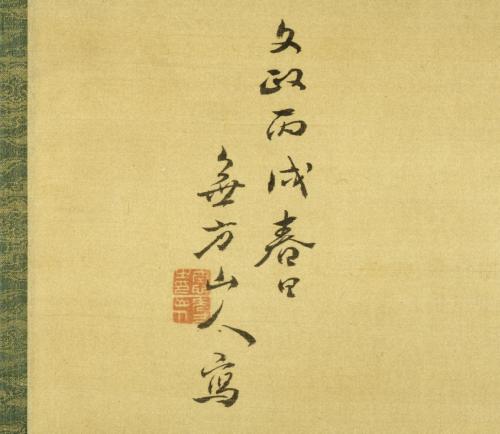 文政丙戌春日
無方山人寫